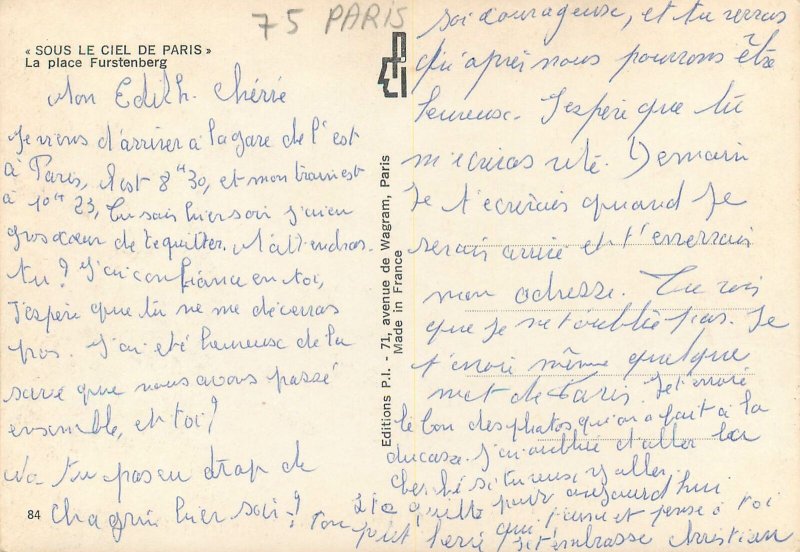 75 PARIS
« SOUS LE CIEL DE PARIS »
La place Furstenberg
Mon Edith. Chérié
Je viens d'arriver à la gare de l'est
à Paris, il est 8H30, et mon train est
à 10H23, tu sais hier soir j'ai eu
gros cœur de te quitter. M'attendras-
tu? J'ai confiance en toi,
J'espère que tu ne me décevras
pas. J'ai été heureuse de la
soirée que nous avons passé
ensemble, et toi?
N'a tu pas eu trop de
chagrin hier soir?
84
Editions P.I. - 71, avenue de Wagram, Paris
Made in France
soi courageuse, et tu verras
qu'après nous pourrons être
heureuse. J'espère que tu
m'écriras vite. Demain
Je t'écrirais quand Je
serais arrivé et t'enverrais
mon adresse. Tu vois
que Je ne t'oublie pas. Je
t'envoi même quelque
mot de Paris. Je t'envoie
le bon des photos qu'on a fait à la
ducasse. J'ai oublié d'aller les
cherché si tu veux y aller.
Je te quitte pour aujourd'hui
Ton petit chérie qui t'aime et pense à toi
Je t'embrasse Christian